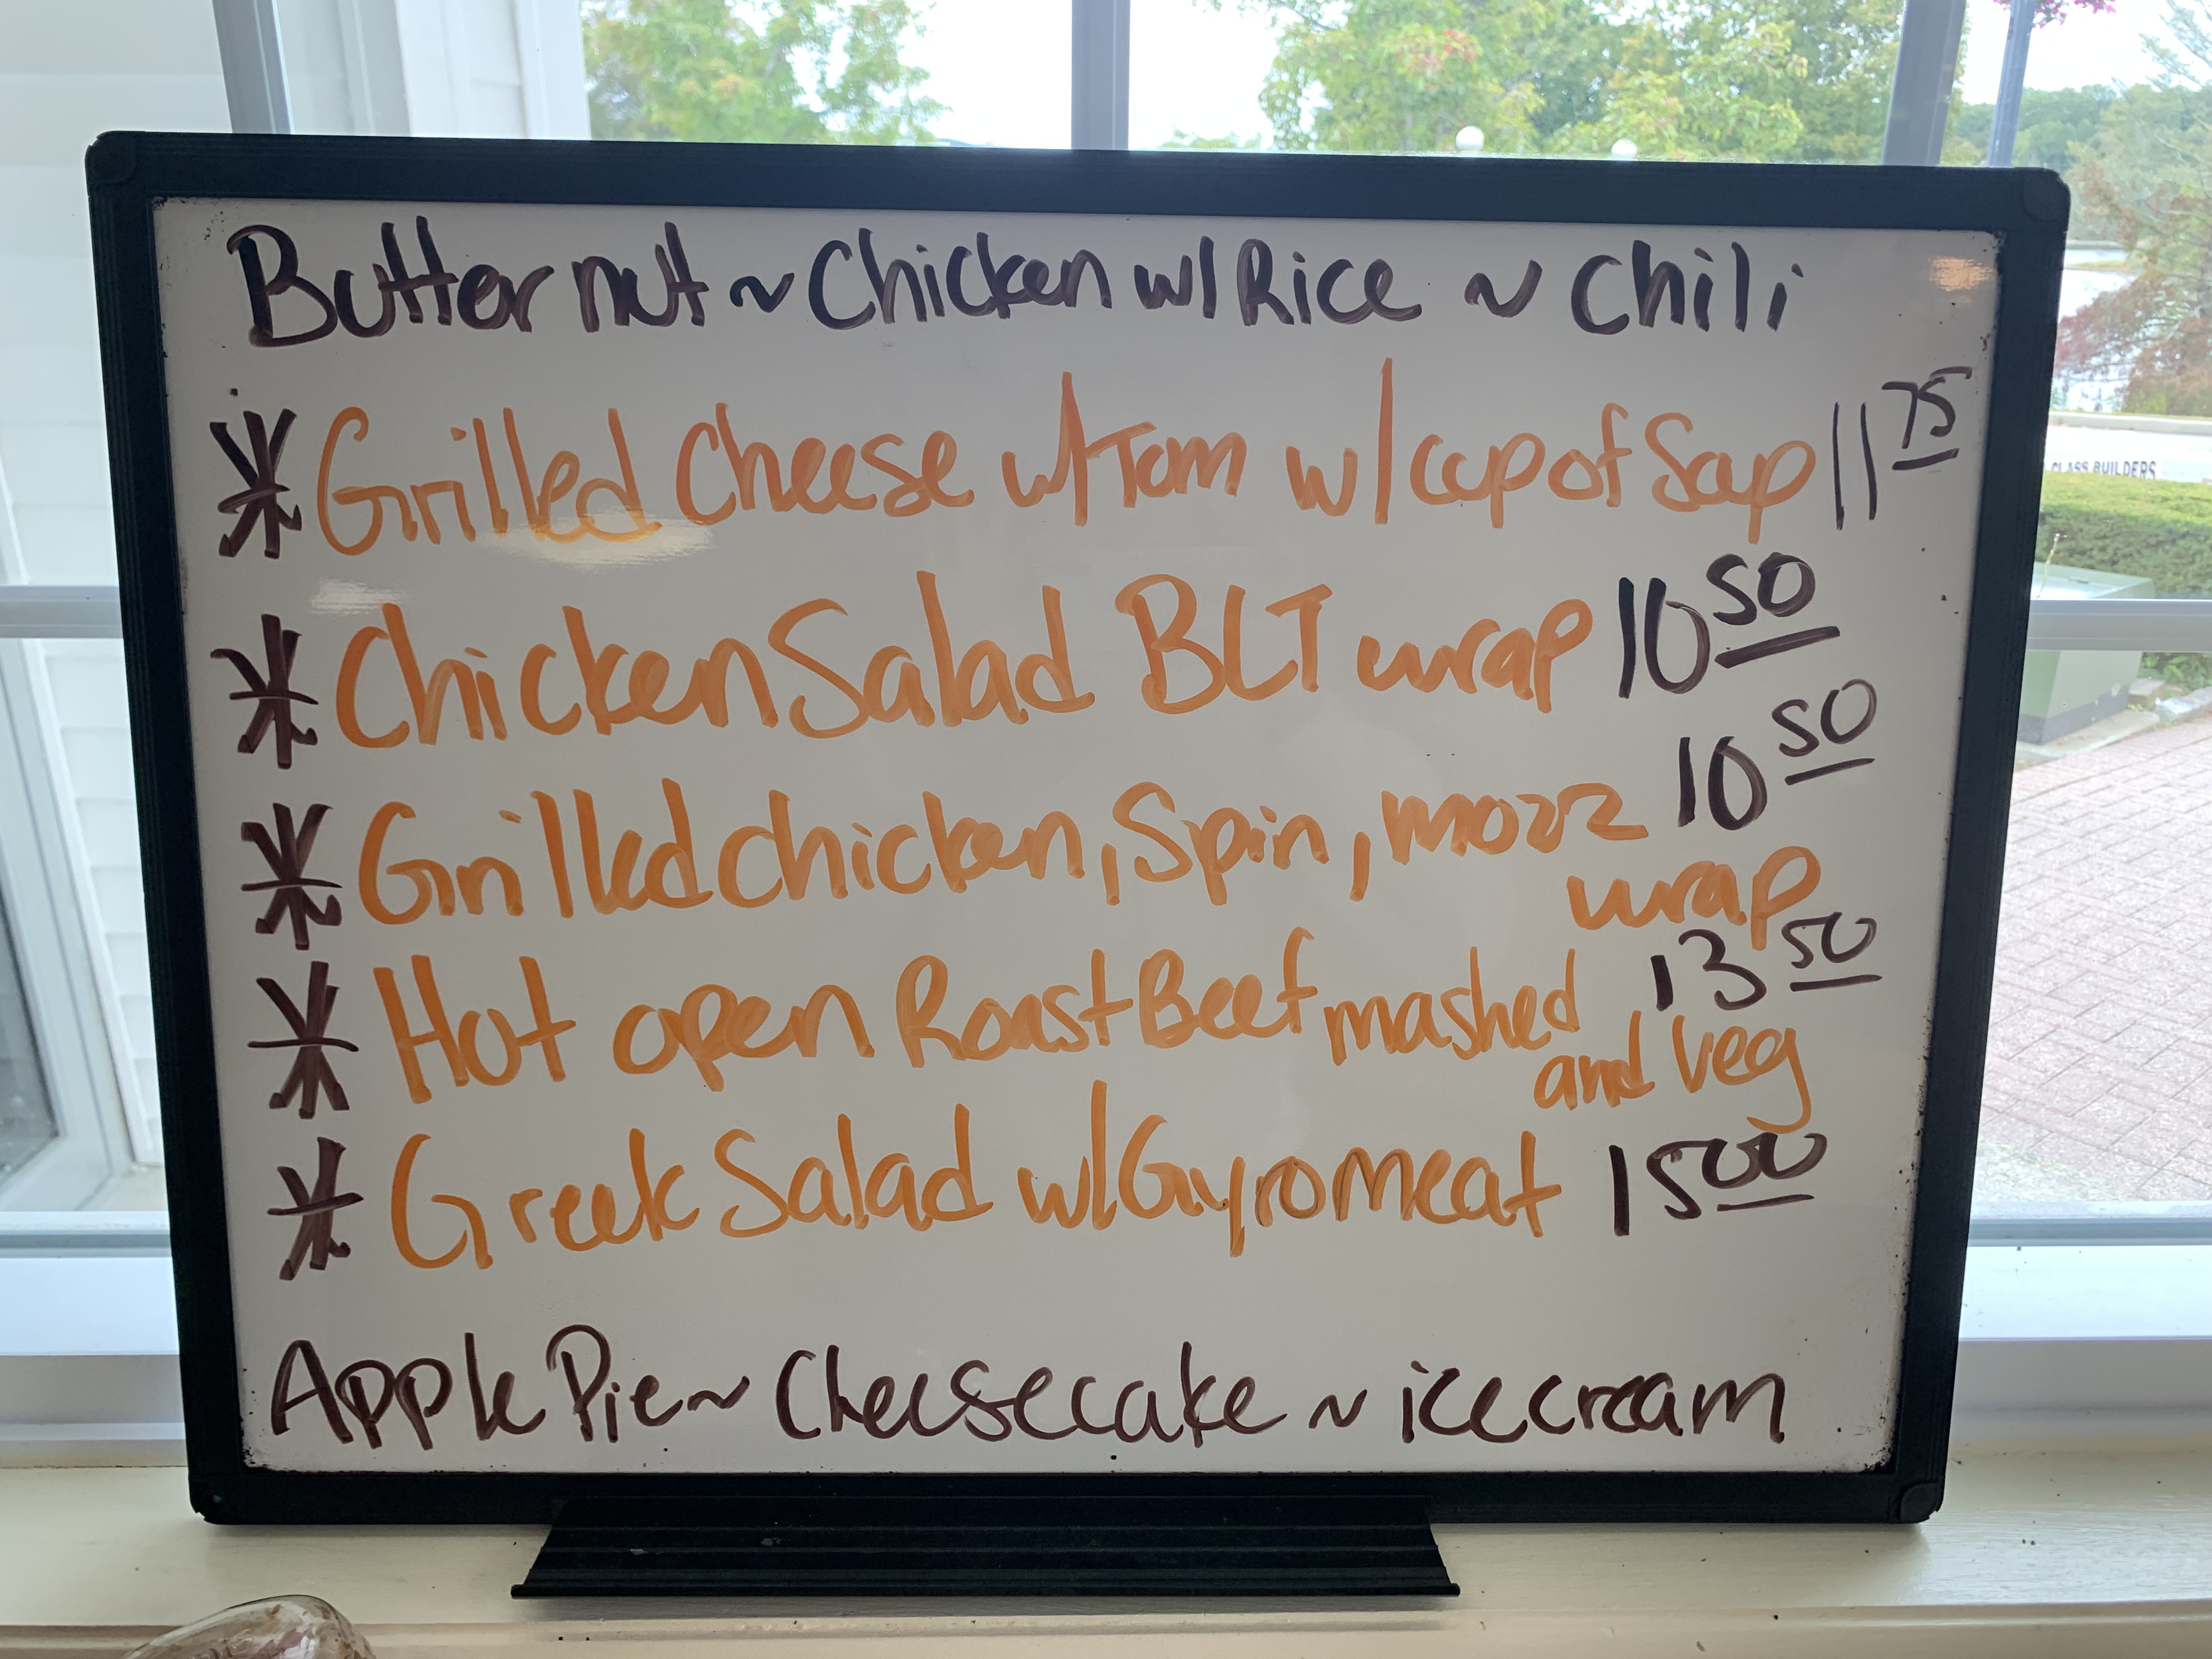 Butternut ~ Chicken w/ Rice ~ Chili
* Grilled Cheese w/ Tom w/ cup of Soup 11 75
* Chicken Salad BLT wrap 10 50
* Grilled chicken, Spin, mozz 10 50
wrap
* Hot open Roast Beef mashed 13 50
and veg
* Greek Salad w/ Gyro meat 15 00
Apple Pie ~ Cheesecake ~ ice cream
GLASS BUILDERS